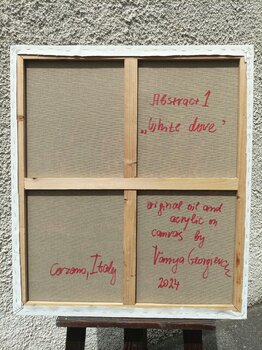 Abstract 1
„White dove"
original oil and
acrylic on
canvas by
Vanya Georgieva
2024
Corzona, Italy